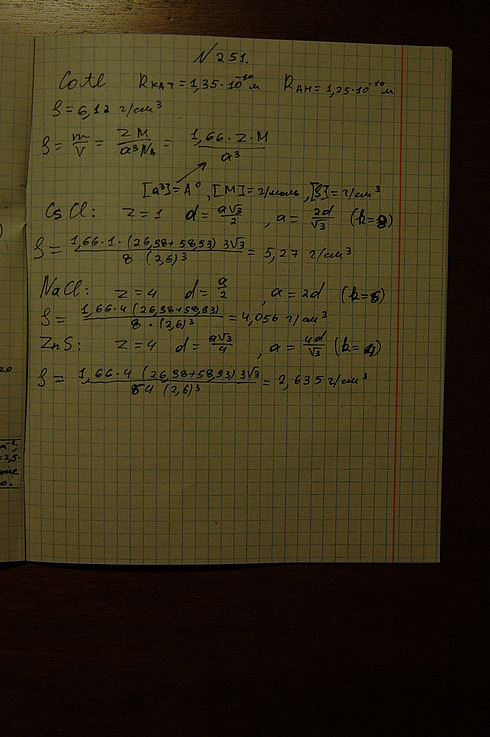 N 251.
CoAl Rкат = 1,35·10⁻¹⁰ м Rан = 1,25·10⁻¹⁰ м
ρ = 6,12 г/см³
ρ = m/V = ZM/a³Nᴀ = 1,66·Z·M/a³
[a³] = A°, [M] = г/моль, [ρ] = г/см³
CsCl: Z=1 d = a√3/2, a = 2d/√3 (k=8)
ρ = 1,66·1·(26,98+58,93) 3√3/8 (2,6)³ = 5,27 г/см³
NaCl: Z=4 d = a/2, a = 2d (k=6)
ρ = 1,66·4 (26,98+58,93)/8·(2,6)³ = 4,056 г/см³
ZnS: Z=4 d = a√3/4, a = 4d/√3 (k=4)
ρ = 1,66·4 (26,98+58,93) 3√3/64 (2,6)³ = 2,635 г/см³